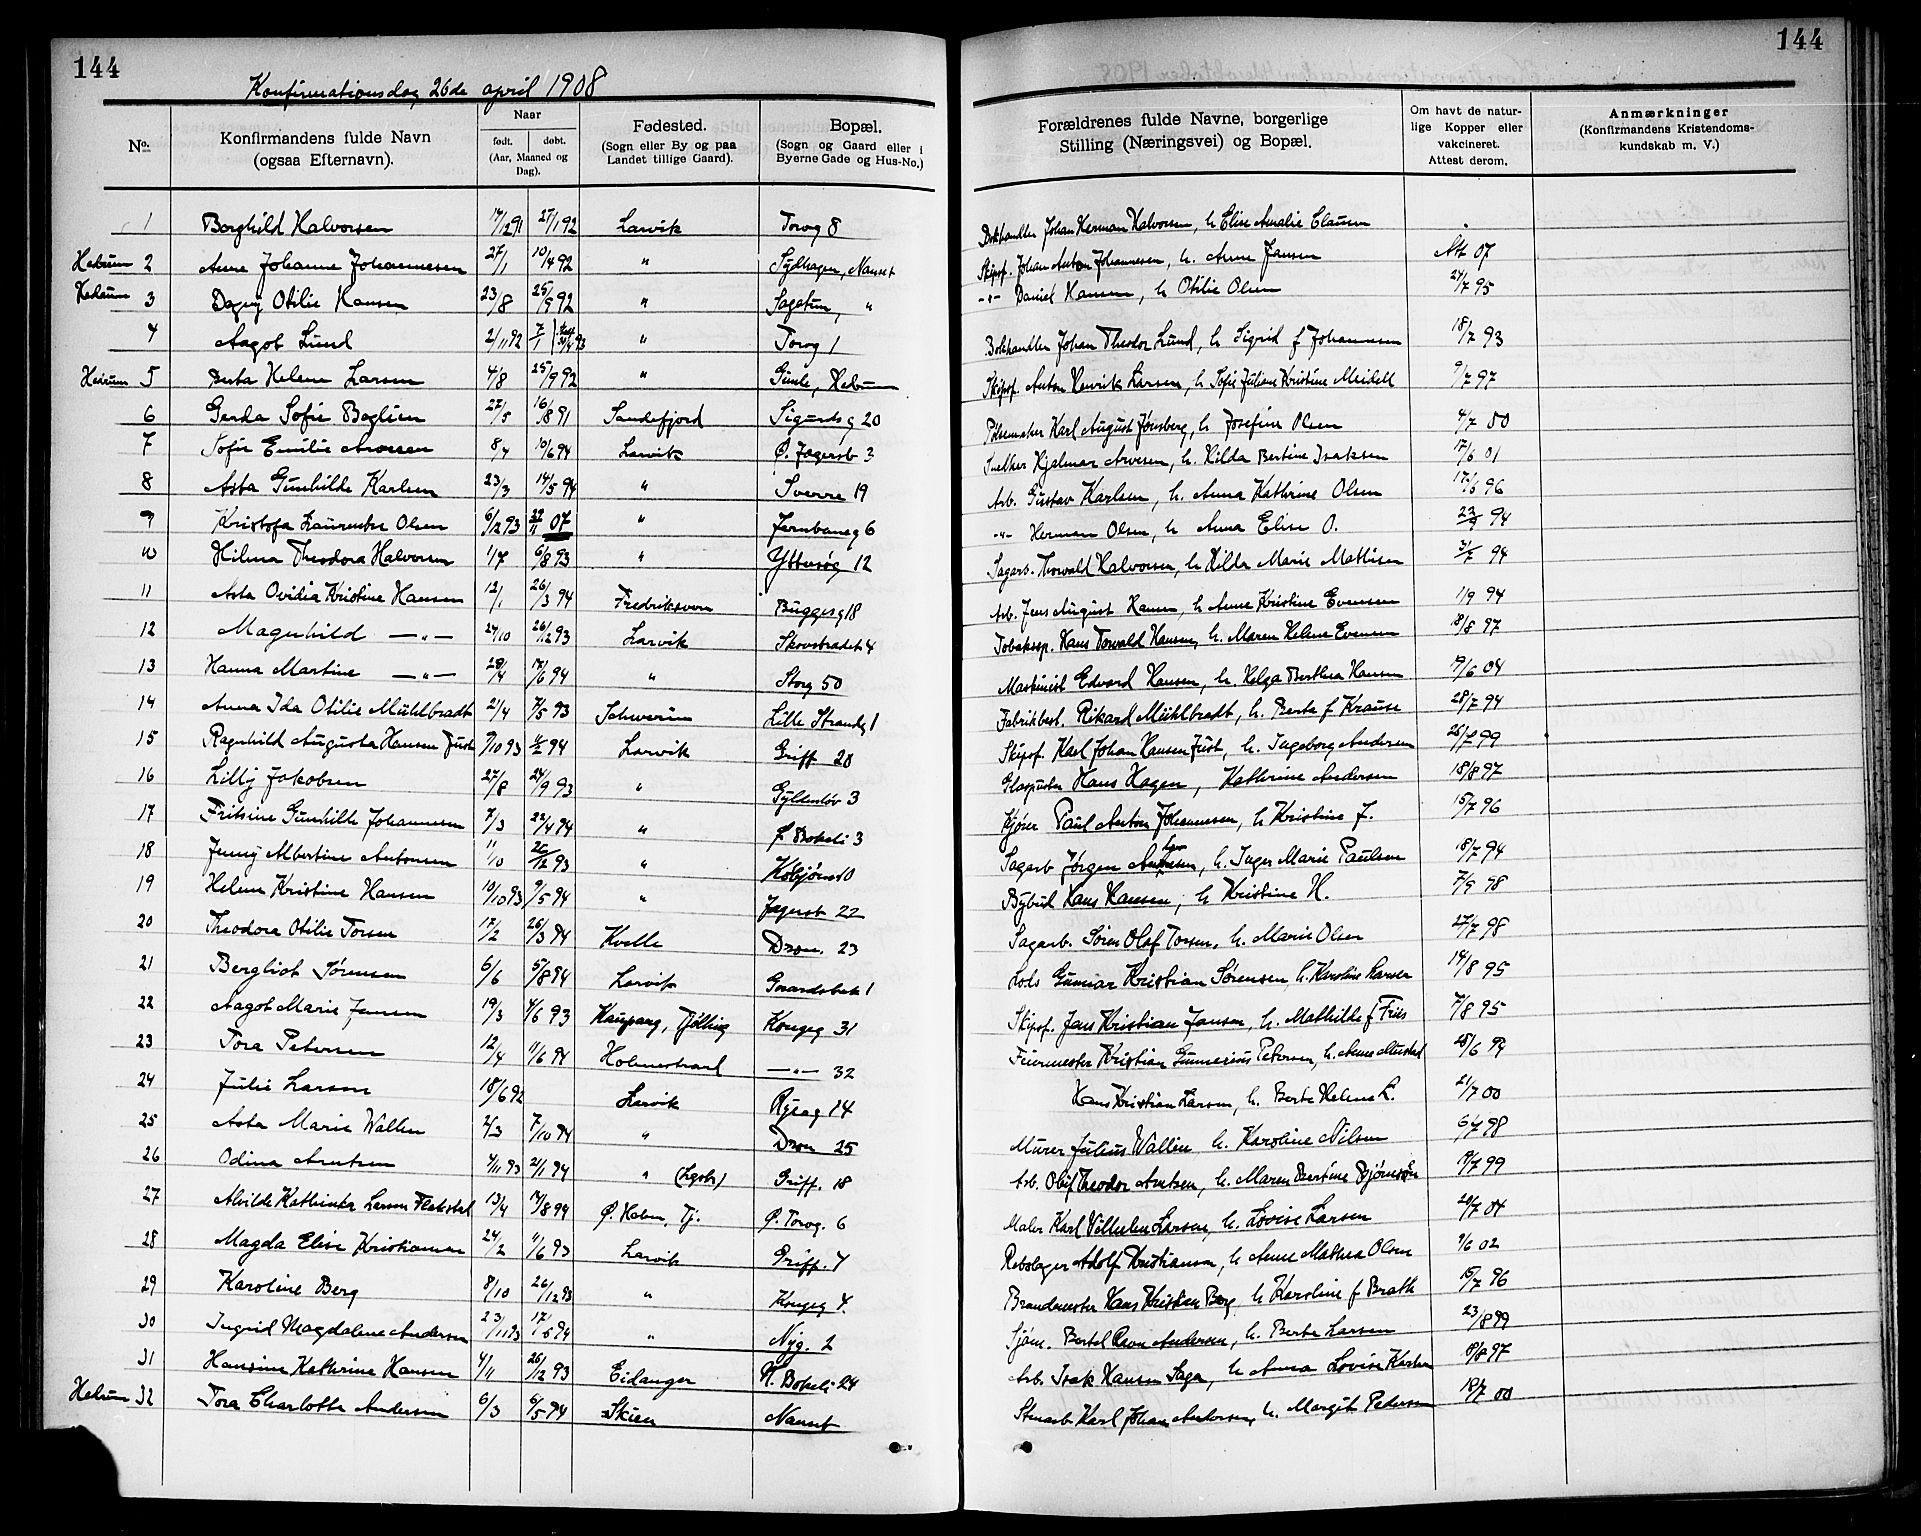 144
144
Konfirmationsdag 26de april 1908
No.
Konfirmandens fulde Navn (ogsaa Efternavn).
Naar
født. døbt.
(Aar, Maaned og Dag).
Fødested.
(Sogn eller By og paa Landet tillige Gaard).
Bopæl.
(Sogn og Gaard eller i Byerne Gade og Hus-No.)
Forældrenes fulde Navne, borgerlige Stilling (Næringsvei) og Bopæl.
Om havt de naturlige Kopper eller vakcineret. Attest derom.
Anmærkninger
(Konfirmandens Kristendomskundskab m. V.)
1 Borghild Halvorsen 17/12 91 27/1 92 Larvik Torvg 8 Bokhandler Johan Herman Halvorsen, h. Elise Amalie Clausen
Hedrum 2 Anne Johanne Johannesen 27/1 10/4 92 " Sydhagen, Nanset Skipsf. Johan Anton Johannesen, h. Anne Jansen Att 07
Hedrum 3 Dagny Otilie Hansen 23/8 25/9 92 " Sagatun, " -"- Daniel Hansen, h Otilie Olsen 24/7 95
4 Aagot Lund 2/11 92 7/1 93 " Torvg 1 Bokhandler Johan Theodor Lund, h Sigrid f Johannesen 18/7 93
Hedrum 5 Berta Helene Larsen 4/8 25/9 92 " Gimle, Hedrum Skipsf. Anton Henrik Larsen, h. Sofie Juliane Kristine Meidell 9/7 97
6 Gerda Sofie Boglien 27/5 16/8 91 Sandefjord Sigurdsg 20 Pølsemaker Karl August Jønsberg, h Josefine Olsen 4/7 50
7 Sofie Emilie Arvesen 8/4 10/6 94 Larvik Ø. Jægersb 3 Snekker Hjalmar Arvesen, h. Hilda Bertine Isaksen 17/6 01
8 Asta Gunhilde Karlsen 23/3 14/5 94 " Sverre 19 Arb. Gustav Karlsen, h. Anna Kathrine Olsen 17/6 96
9 Kristofa Laurentse Olsen 6/12 93 22/11 07 " Jernbaneg 6 -"- Herman Olsen, h Anna Elise O. 23/9 94
10 Hilma Theodora Halvorsen 1/7 6/8 93 " Yttersøg 12 Sagarb. Thorvald Halvorsen, h Hilda Marie Mathisen 31/7 94
11 Asta Ovidia Kristine Hansen 12/1 26/3 94 Fredriksvern Buggesg 18 Arb. Jens August Hansen, h Anne Kristine Evensen 1/9 94
12 Magnhild -"- 24/10 26/12 93 Larvik Skovbradet 4 Tobaksp. Hans Torvald Hansen, h. Maren Helene Evensen 18/8 97
13 Hanna Martine -"- 28/4 17/6 94 " Storg 50 Maskinist Edvard Hansen, h. Helga Berthea Hansen 19/6 04
14 Anna Ida Otilie Mühlbradt 21/4 7/5 93 Schwerin Lille Strandg 1 Fabrikbest. Rikard Mühlbradt, h. Berta f Krause 28/7 94
15 Ragnhild Augusta Hansen Just 9/10 93 4/2 94 Larvik Griff 28 Skipsf. Karl Johan Hansen Just, h. Ingeborg Andersen 28/7 99
16 Lilly Jakobsen 27/8 24/9 93 " Gyldenløv 3 Glaspuster Hans Hagen, Kathrine Andersen 18/8 97
17 Fritsine Gunhilde Johannesen 7/3 22/4 94 " Ø Bokeli 3 Kjører Paul Anton Johannesen, h Kristine J. 15/7 96
18 Jenny Albertine Antonsen 11/10 26/12 93 " Kolbjørns 10 Sagarb Jørgen , h. Inger Marie Paulsen 18/7 94
19 Helene Kristine Hansen 10/10 93 9/5 94 " Jegersb 22 Bybud Hans Hansen, h Kristine H. 7/9 98
20 Theodora Otilie Torsen 17/2 26/3 94 Kvelle Dron. 23 Sagarb. Søren Olaf Torsen, h. Marie Olsen 27/7 98
21 Bergliot Sørensen 6/6 5/8 94 Larvik Gaardsbak 1 Lods Gunnar Kristian Sørensen h. Karoline Larsen 14/8 95
22 Aagot Marie Jansen 19/3 4/6 93 Kaupang, Tjølling Kongeg 31 Skipsf. Jans Kristian Jansen, h. Mathilde f Friis 7/8 95
23 Tora Petersen 12/4 11/6 94 Holmestrand -"- 32 Fuermester Kristian Gunnerius Petersen, h. 28/6 94
24 Julie Larsen 18/6 92 Larvik Ryeag 14 Hans Kristian Larsen, h. Berte Helene L. 21/7 00
25 Asta Marie Wallin 2/3 7/10 94 " Dron 25 Murer Julius Wallin h. Karoline Nilsen 6/7 98
26 Odina Arntsen 4/11 93 2/1 94 " Griff. 18 Arb. Oluf Theodor Arntsen, h. Maren Bertine Bjørnsen 19/7 99
27 Alvilde Kathinka Larsen 13/4 14/8 94 Ø. Halsen, Tj. Ø. Torvg. 6 Maler Karl Vilhelm Larsen, h. Lovise Larsen 20/7 04
28 Magda Elise Kristiansen 24/2 11/6 93 Larvik Griff. 4 Rebslager Adolf Kristiansen, h Anne Mathea Olsen 1/6 02
29 Karoline Berg 8/10 26/12 93 " Kongeg 4. Brandmester Hans Kristian Berg h Karoline f Brath 15/7 96
30 Ingrid Magdalene Andersen 23/11 93 17/5 94 " Nyg. 2 Sjøm. Bertel Ravn Andersen, h. Berte Larsen 23/8 99
31 Hansine Kathrine Hansen 4/11 26/12 93 Eidanger N. Bokeli 24 Arb. Isak Hansen Saga, h Anna Lovise Karlsen 18/8 97
Hedrum 32 Tora Charlotte Andersen 6/3 6/5 94 Skien Nanset Stenarb Karl Johan Andersen, h. Margit Pedersen 18/7 00